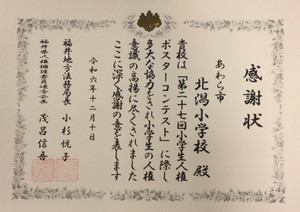 感謝状
あわら市
北潟小学校 殿
貴校は「第二十七回小学生人権
ポスターコンテスト」に際し
多大な協力をされ小学生の人権
意識の高揚に尽くされました
ここに深く感謝の意を表します
令和六年十二月十日
福井地方法務局長 小杉悦子
福井県人権擁護委員連合会会長 茂呂信吾